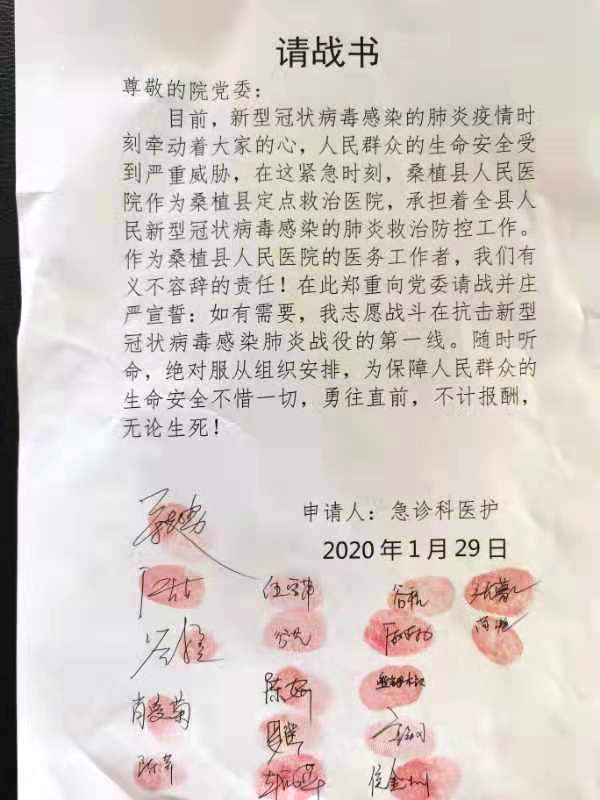 请战书
尊敬的院党委：
目前，新型冠状病毒感染的肺炎疫情时
刻牵动着大家的心，人民群众的生命安全受
到严重威胁，在这紧急时刻，桑植县人民医
院作为桑植县定点救治医院，承担着全县人
民新型冠状病毒感染的肺炎救治防控工作。
作为桑植县人民医院的医务工作者，我们有
义不容辞的责任！在此郑重向党委请战并庄
严宣誓：如有需要，我志愿战斗在抗击新型
冠状病毒感染肺炎战役的第一线。随时听
命，绝对服从组织安排，为保障人民群众的
生命安全不惜一切，勇往直前，不计报酬，
无论生死！
申请人：急诊科医护
2020年1月29日